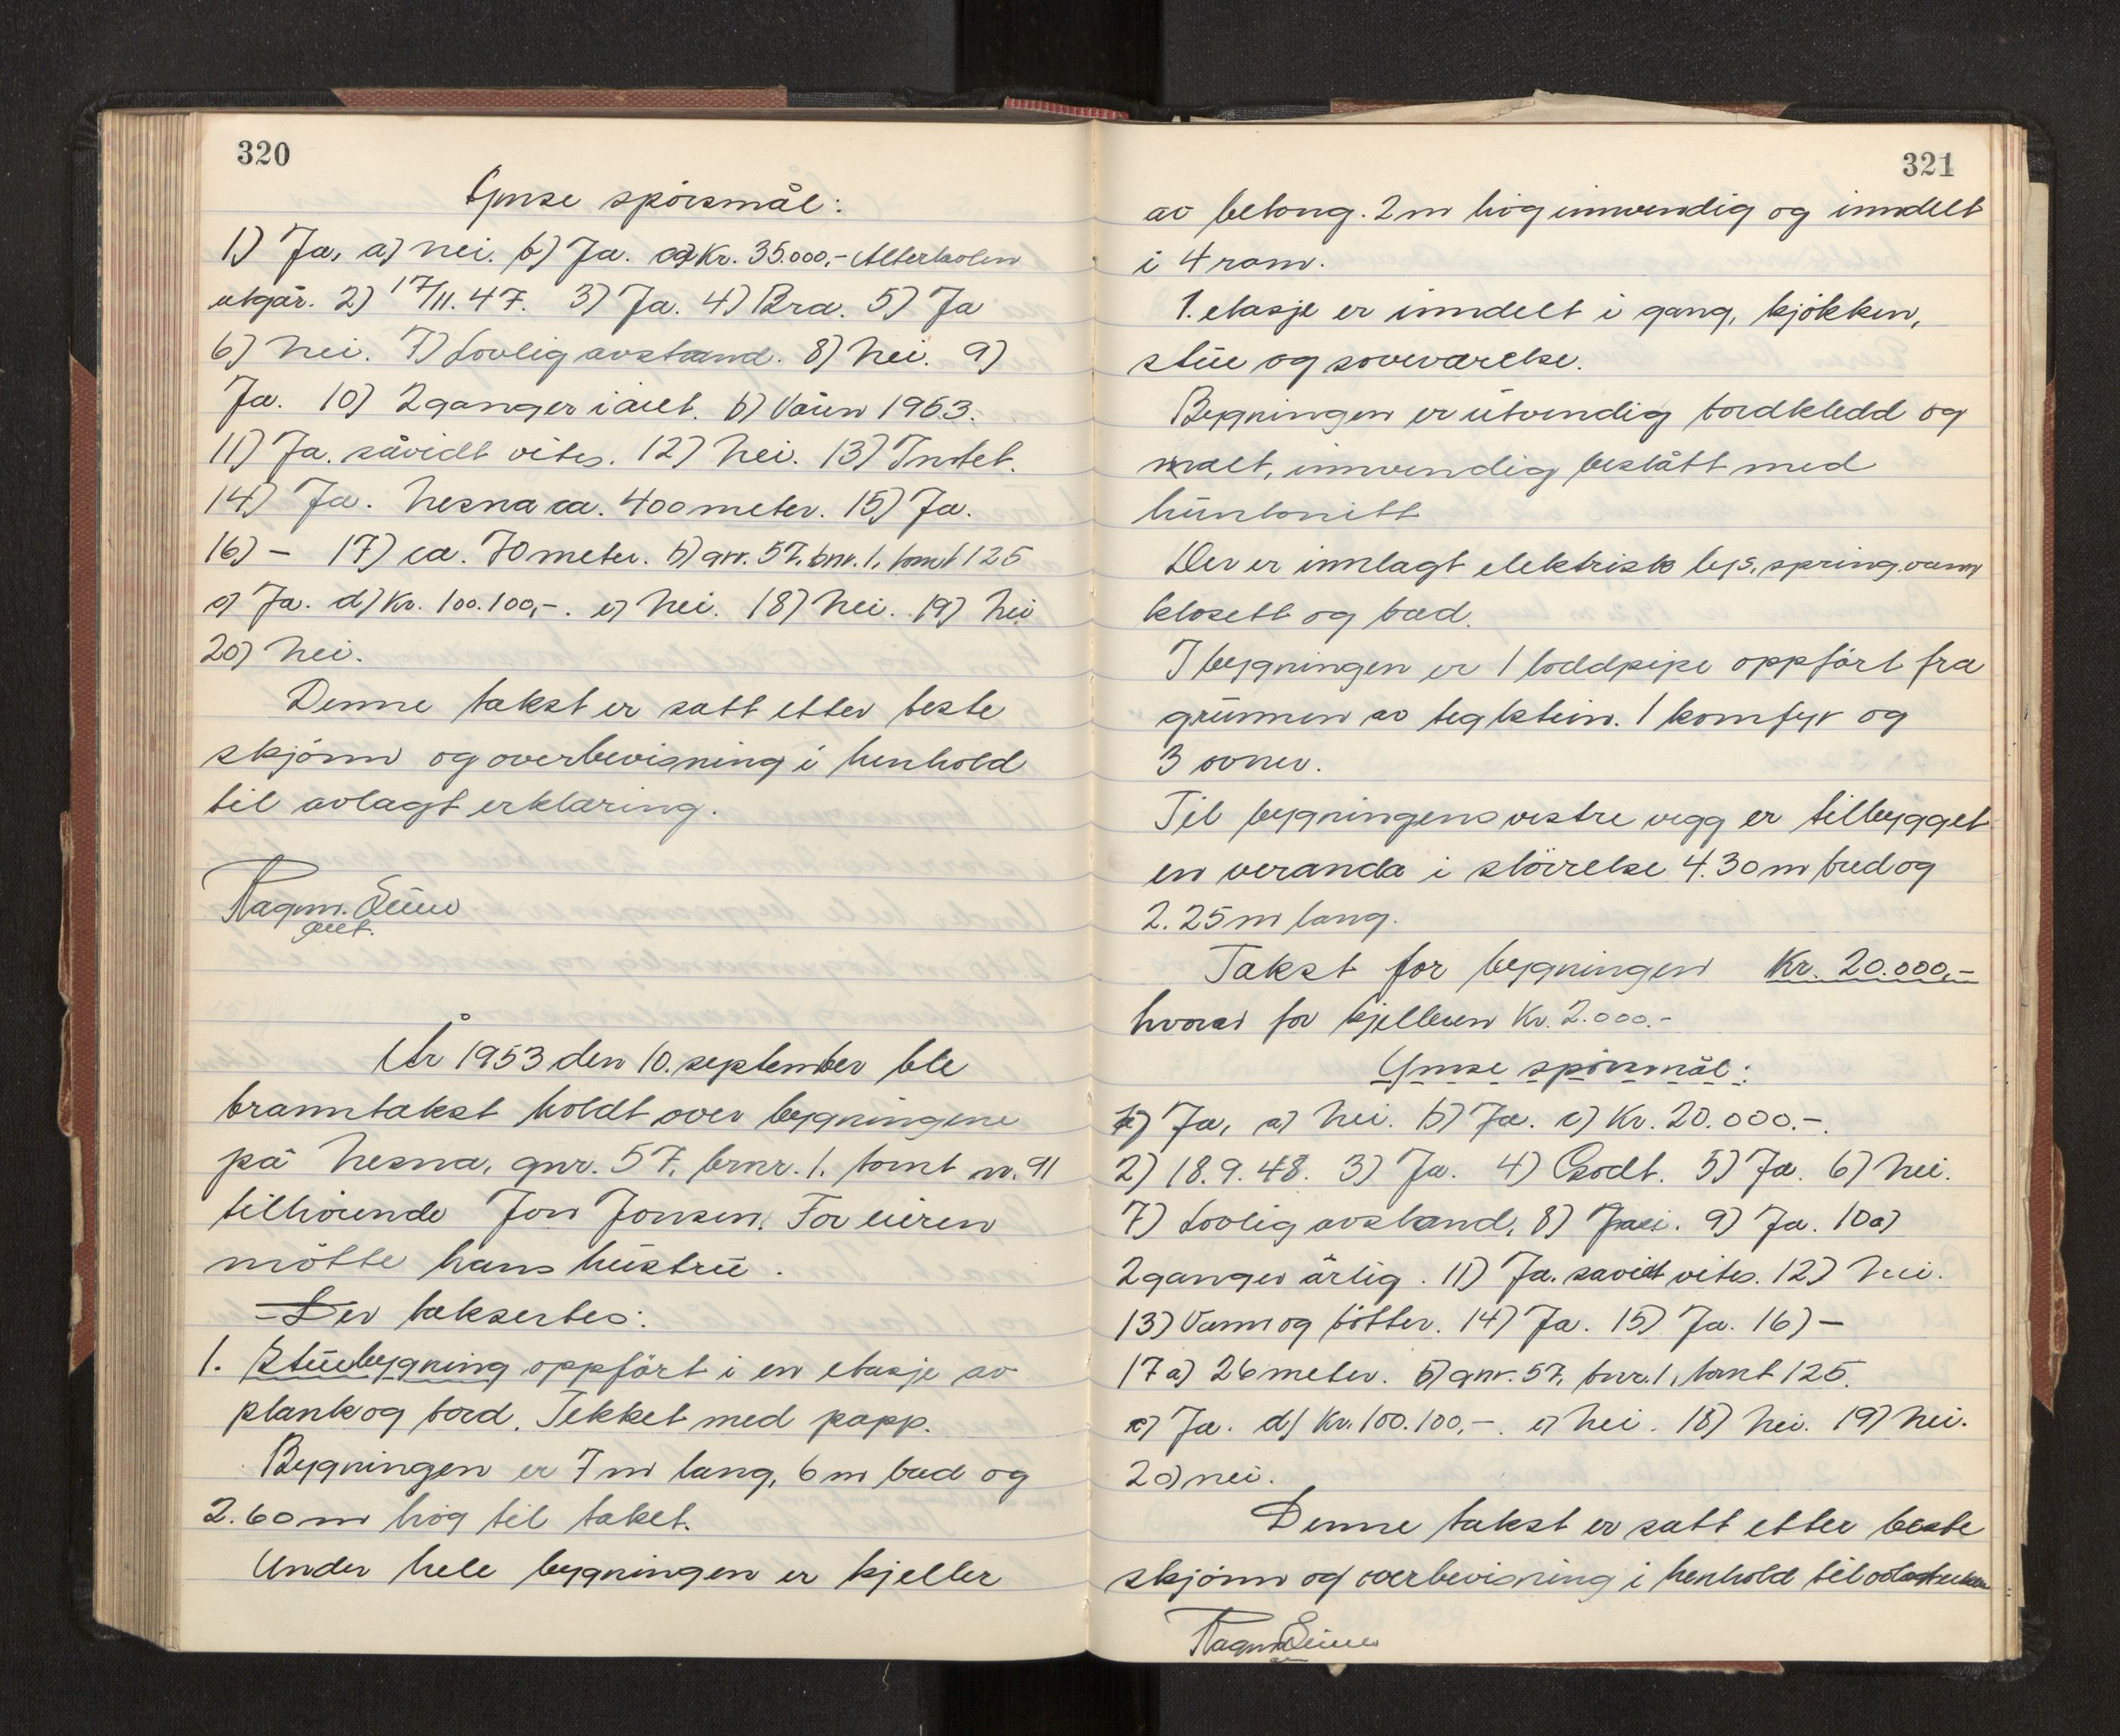 320
Ymse spörsmål:
1) Ja, a) nei. b) Ja. c) Kr. 35.000,-
utgår. 2) 17/11.47. 3) Ja. 4) Bra. 5) Ja
6) Nei. 7) Lovlig avstand. 8) Nei. 9)
Ja. 10) 2 ganger i året. b) Våren 1953.
11) Ja. såvidt vites. 12) Nei. 13) Intet.
14) Ja. Nesna ca. 400 meter. 15) Ja.
16) - 17) ca. 70 meter. b) gnr. 57, bnr. 1, tomt 125
c) Ja. d) Kr. 100.100,-. e) Nei. 18) Nei. 19) Nei
20) Nei.
Denne takst er satt etter beste
skjönn og overbevisning i henhold
til avlagt erklæring.
Ragnv.
År 1953 den 10. september ble
branntakst holdt over bygningene
på Nesna, gnr. 57, brnr. 1. tomt nr. 91
tilhörende Jon Jonsen. For eieren
mötte hans hustru.
Der takserbes:
1. Stuebygning oppfört i en etasje av
plank og bord. Tekket med papp.
Bygningen er 7 m lang, 6 m bred og
2.60 m hög til taket.
Under hele bygningen er kjeller
321
av betong. 2 m hög innvendig og inndelt
i 4 rom.
1. etasje er inndelt i gang, kjökken,
stue og soveværelse.
Bygningen er utvendig bordkledd og
malt, innvendig beslått med
huntonitt
Der er innlagt elektrisk lys, springvann
klosett og bad.
I bygningen er 1 loddpipe oppfört fra
grunnen av teglstein. 1 komfyr og
3 ovner.
Til bygningens vestre vegg er tilbygget
en veranda i störrelse 4.30 m bred og
2.25 m lang.
Takst for bygningen Kr. 20.000,-
hvorav for kjelleren Kr. 2.000.-
Ymse spörsmål:
1) Ja, a) Nei. b) Ja. c) Kr. 20.000.-.
2) 18.9.48. 3) Ja. 4) Godt. 5) Ja. 6) Nei.
7) Lovlig avstand, 8) 9) Ja. 10a)
2 ganger årlig. 11) Ja. savidt vites. 12) Nei.
13) Vann og bötter. 14) Ja. 15) Ja. 16) -
17 a) 26 meter. b) gnr. 57, bnr. 1, tomt 125.
c) Ja. d) Kr. 100.100,-. e) Nei. 18) Nei. 19) Nei.
20) nei.
Denne takst er satt etter beste
skjönn og overbevisning i henhold til
Ragnv.